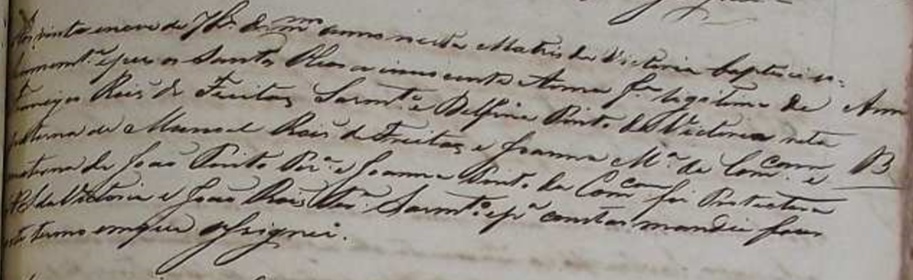 Aos vinte e nove de 7br.o do mmo anno nesta Matris da Victoria baptisei so-
lemnemt.e e puz os Santos Oleos a innocente Anna f.a legitima de Anna
Rois de Freitas Sarmt.o e Delfina Pinto da Victoria neta B
paterna de Manoel Rois de Freitas, e Joanna M.a da Comcam e
materna de João Pinto Per.a e Joanna Pinto da Comcam foi Protectora
N. Sr.a da Victoria e João Rois Sarmt.o e p.a constar mandei fazer
este termo em que assignei.